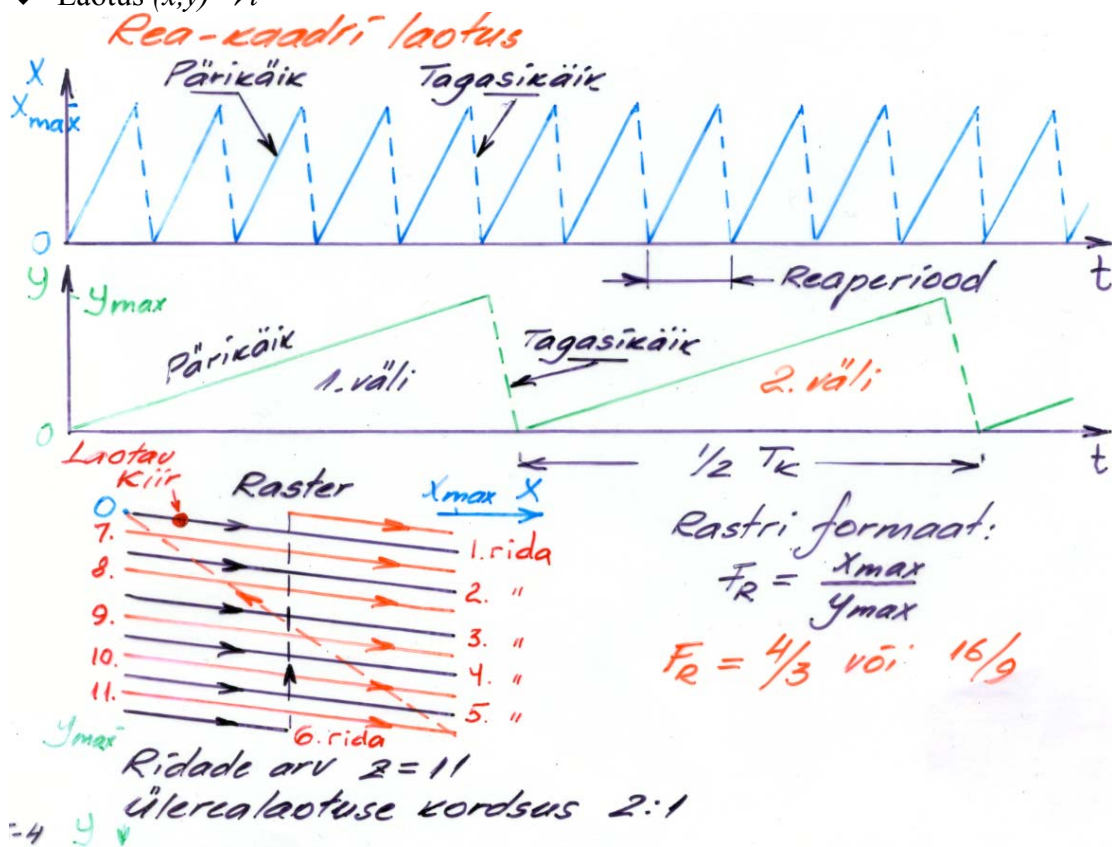 Laotus (x,y)
Rea-kaadri laotus
X
Xmax
Pärikäik
Tagasikäik
0
t
Reaperiood
y
ymax
Pärikäik
1. väli
Tagasikäik
2. väli
0
t
1/2 Tk
Laotav
kiir
Raster
Xmax X
0
7.
8.
9.
10.
11.
1. rida
2. "
3. "
4. "
5. "
6. rida
ymax
Rastri formaat:
FR = Xmax
ymax
FR = 4/3 või 16/9
Ridade arv z = 11
Ülerealaotuse kordsus 2:1
-4 y